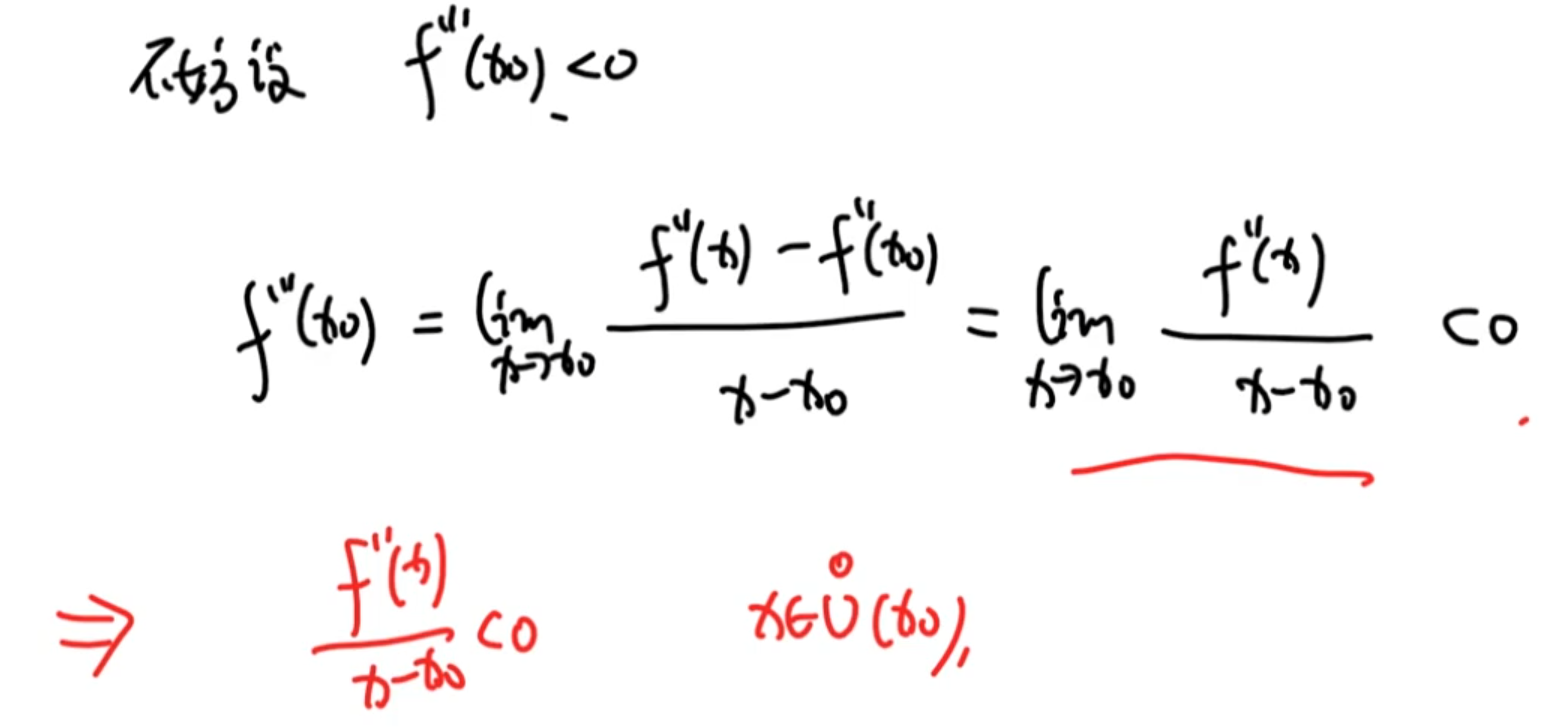 不妨设 f'''(x₀) < 0
f'''(x₀) = lim_{x→x₀} (f''(x) − f''(x₀))/(x − x₀) = lim_{x→x₀} f''(x)/(x − x₀) < 0
⇒ f''(x)/(x − x₀) < 0 x∈Ů(x₀),